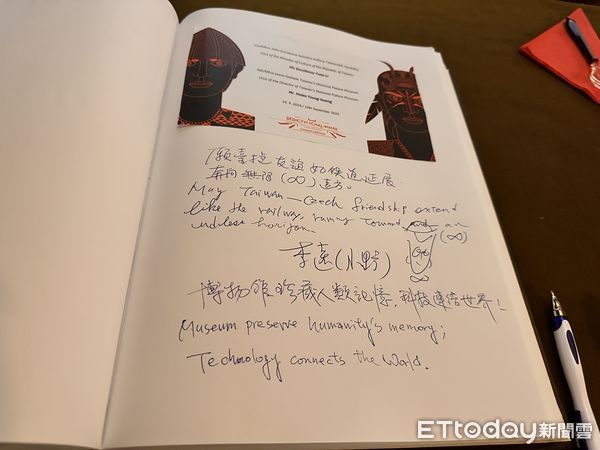 His Excellency
Mr. Hsiao Tsung-huang
願臺捷友誼如鐵道延展
奔向無限 (∞) 遠方。
May Taiwan-Czech friendship extend
like the railway, running toward an
endless horizon. (∞)
李遠(小野)
∞
博物館珍藏人類記憶,科技連結世界!
Museum preserve humanity's memory;
Technology connects the World.
ETtoday新聞雲